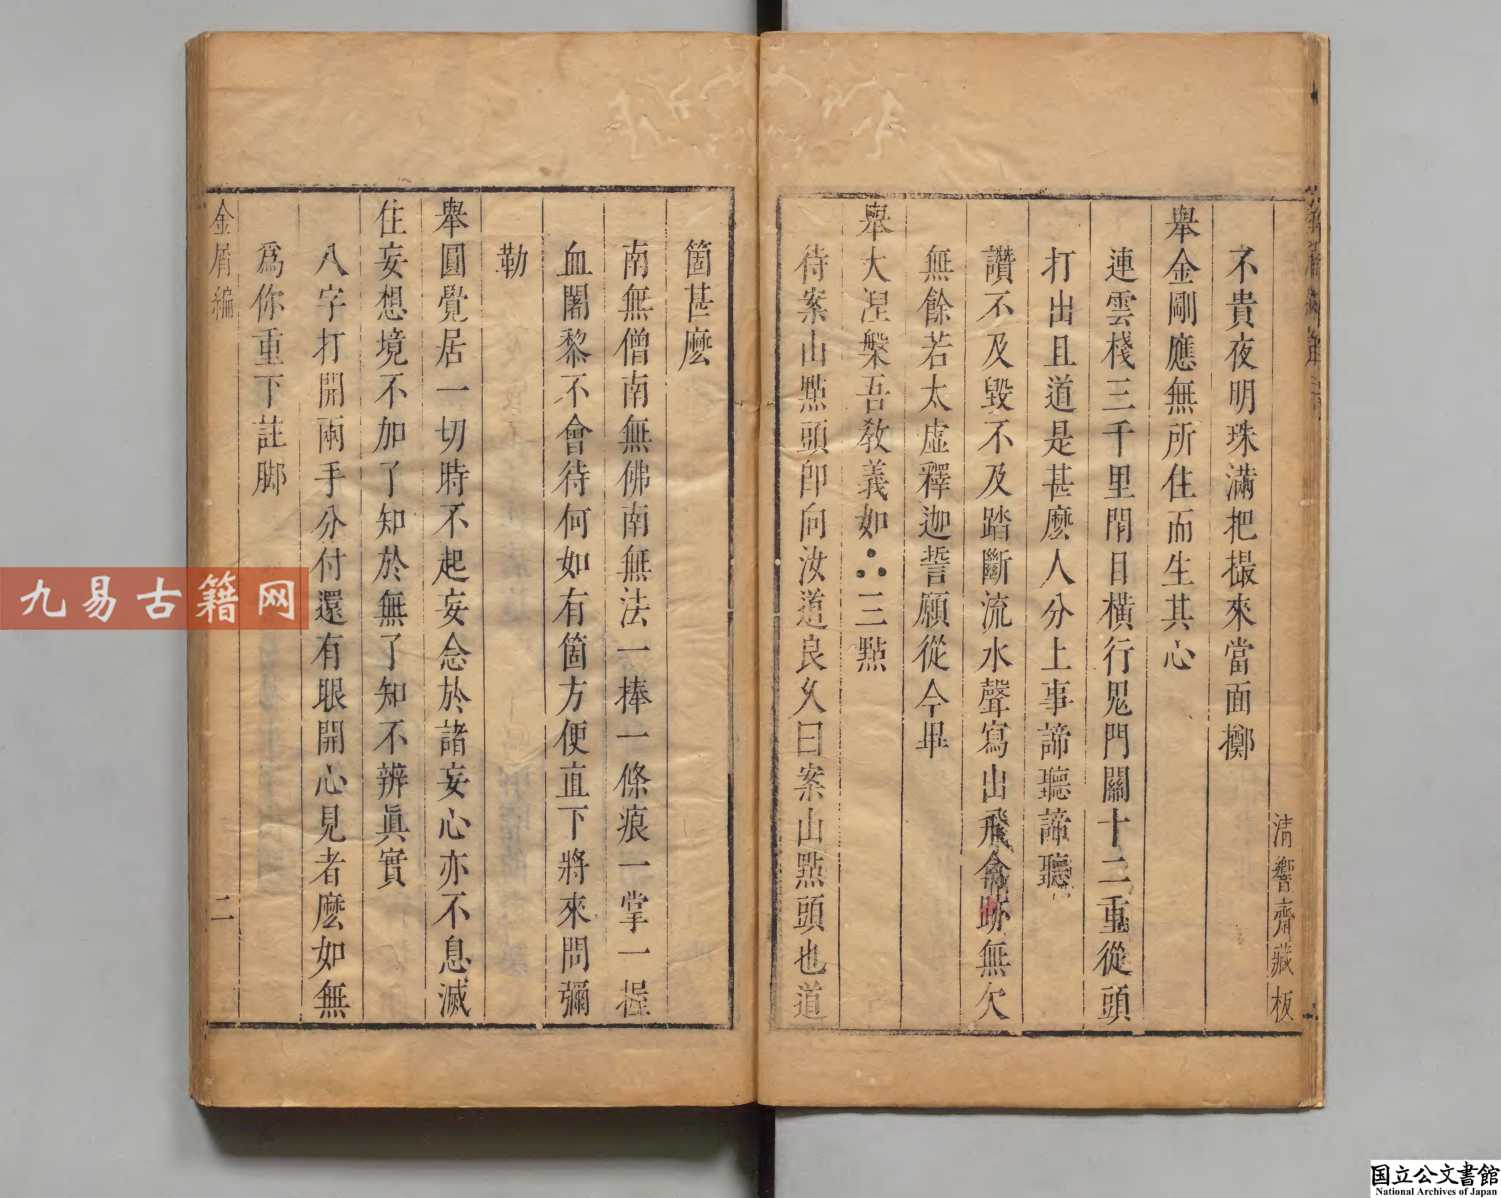 不貴夜明珠滿把撮來當面擲
舉金剛應無所住而生其心
連雲棧三千里閉目橫行鬼門關十二重從頭
打出且道是甚麼人分上事諦聽諦聽
讚不及毀不及踏斷流水聲寫出飛禽跡無欠
無餘若太虛釋迦誓願從今畢
舉大涅槃吾教義如∴三點
待案山點頭即向汝道良久曰案山點頭也道
清響齋藏板
箇甚麼
南無僧南無佛南無法一捧一條痕一掌一握
血闍黎不會待何如有箇方便直下將來問彌
勒
舉圓覺居一切時不起妄念於諸妄心亦不息滅
住妄想境不加了知於無了知不辨眞實
八字打開兩手分付還有眼開心見者麼如無
爲你重下註脚
金屑編
二
九易古籍网
国立公文書館
National Archives of Japan